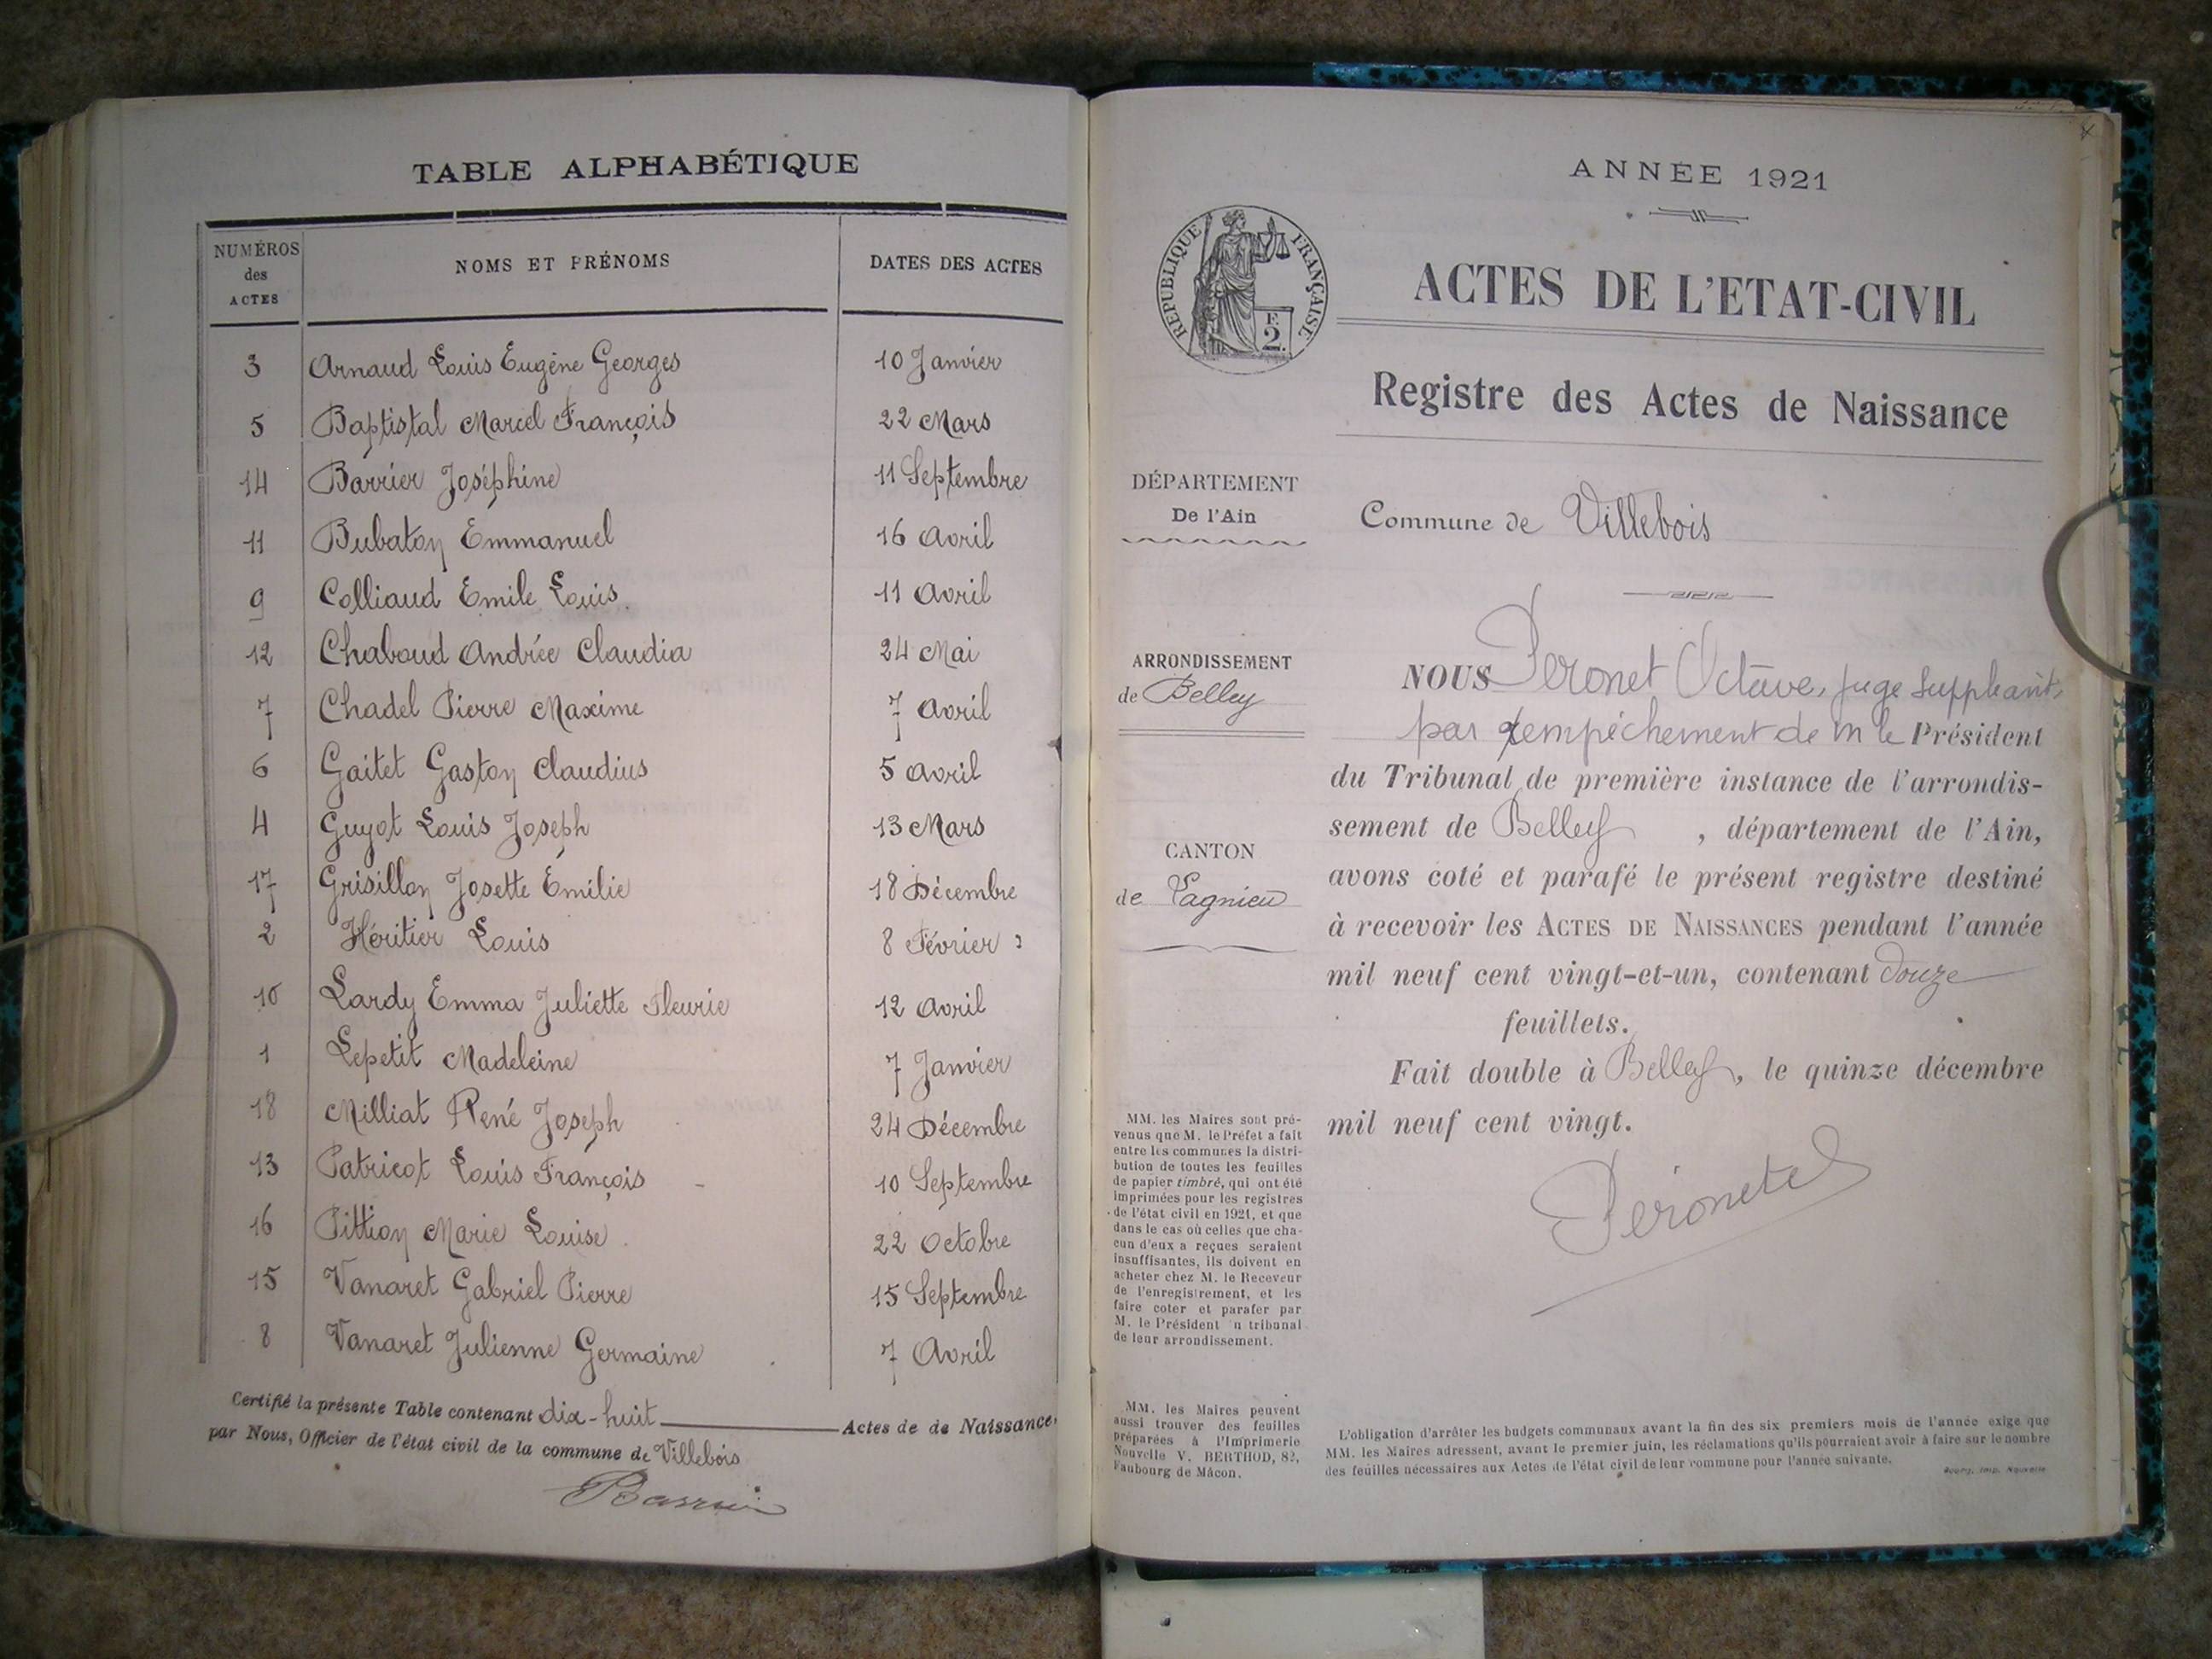 TABLE ALPHABÉTIQUE
NUMÉROS des ACTES NOMS ET PRÉNOMS DATES DES ACTES
3 Arnaud Louis Eugène Georges 10 Janvier
5 Baptistal Marcel François 22 Mars
14 Barrier Joséphine 11 Septembre
11 Bubaton Emmanuel 16 Avril
9 Colliaud Emile Louis 11 Avril
12 Chaboud Andrée Claudia 24 Mai
7 Chadel Pierre Maxime 7 Avril
6 Gaitet Gaston Claudius 5 Avril
4 Guyot Louis Joseph 13 Mars
17 Grisillon Josette Émilie 18 Décembre
2 Héritier Louis 8 Février
10 Lardy Emma Juliette Fleurie 12 Avril
1 Lepetit Madeleine 7 Janvier
18 Milliat René Joseph 24 Décembre
13 Patricot Louis François 10 Septembre
16 Pittion Marie Louise 22 Octobre
15 Vanaret Gabriel Pierre 15 Septembre
8 Vanaret Julienne Germaine 7 Avril
Certifié la présente Table contenant dix-huit Actes de de Naissance,
par Nous, Officier de l'état civil de la commune de Villebois
ANNÉE 1921
RÉPUBLIQUE FRANÇAISE
F.
2.
ACTES DE L'ETAT-CIVIL
Registre des Actes de Naissance
DÉPARTEMENT
De l'Ain
Commune de Villebois
ARRONDISSEMENT
de Belley
CANTON
de Lagnieu
NOUS Peronet Octave, juge suppléant,
par empêchement de M le Président
du Tribunal de première instance de l'arrondis-
sement de Belley, département de l'Ain,
avons coté et parafé le présent registre destiné
à recevoir les ACTES DE NAISSANCES pendant l'année
mil neuf cent vingt-et-un, contenant douze
feuillets.
Fait double à Belley, le quinze décembre
mil neuf cent vingt.
MM. les Maires sont pré-
venus que M. le Préfet a fait
entre les communes la distri-
bution de toutes les feuilles
de papier timbré, qui ont été
imprimées pour les registres
de l'état civil en 1921, et que
dans le cas où celles que cha-
cun d'eux a reçues seraient
insuffisantes, ils doivent en
acheter chez M. le Receveur
de l'enregistrement, et les
faire coter et parafer par
M. le Président u tribunal
de leur arrondissement.
MM. les Maires peuvent
aussi trouver des feuilles
préparées à l'Imprimerie
Nouvelle V. BERTHOD, 82,
Faubourg de Mâcon.
L'obligation d'arrêter les budgets communaux avant la fin des six premiers mois de l'année exige que
MM. les Maires adressent, avant le premier juin, les réclamations qu'ils pourraient avoir à faire sur le nombre
des feuilles nécessaires aux Actes de l'état civil de leur commune pour l'année suivante.
Bourg, Imp. Nouvelle